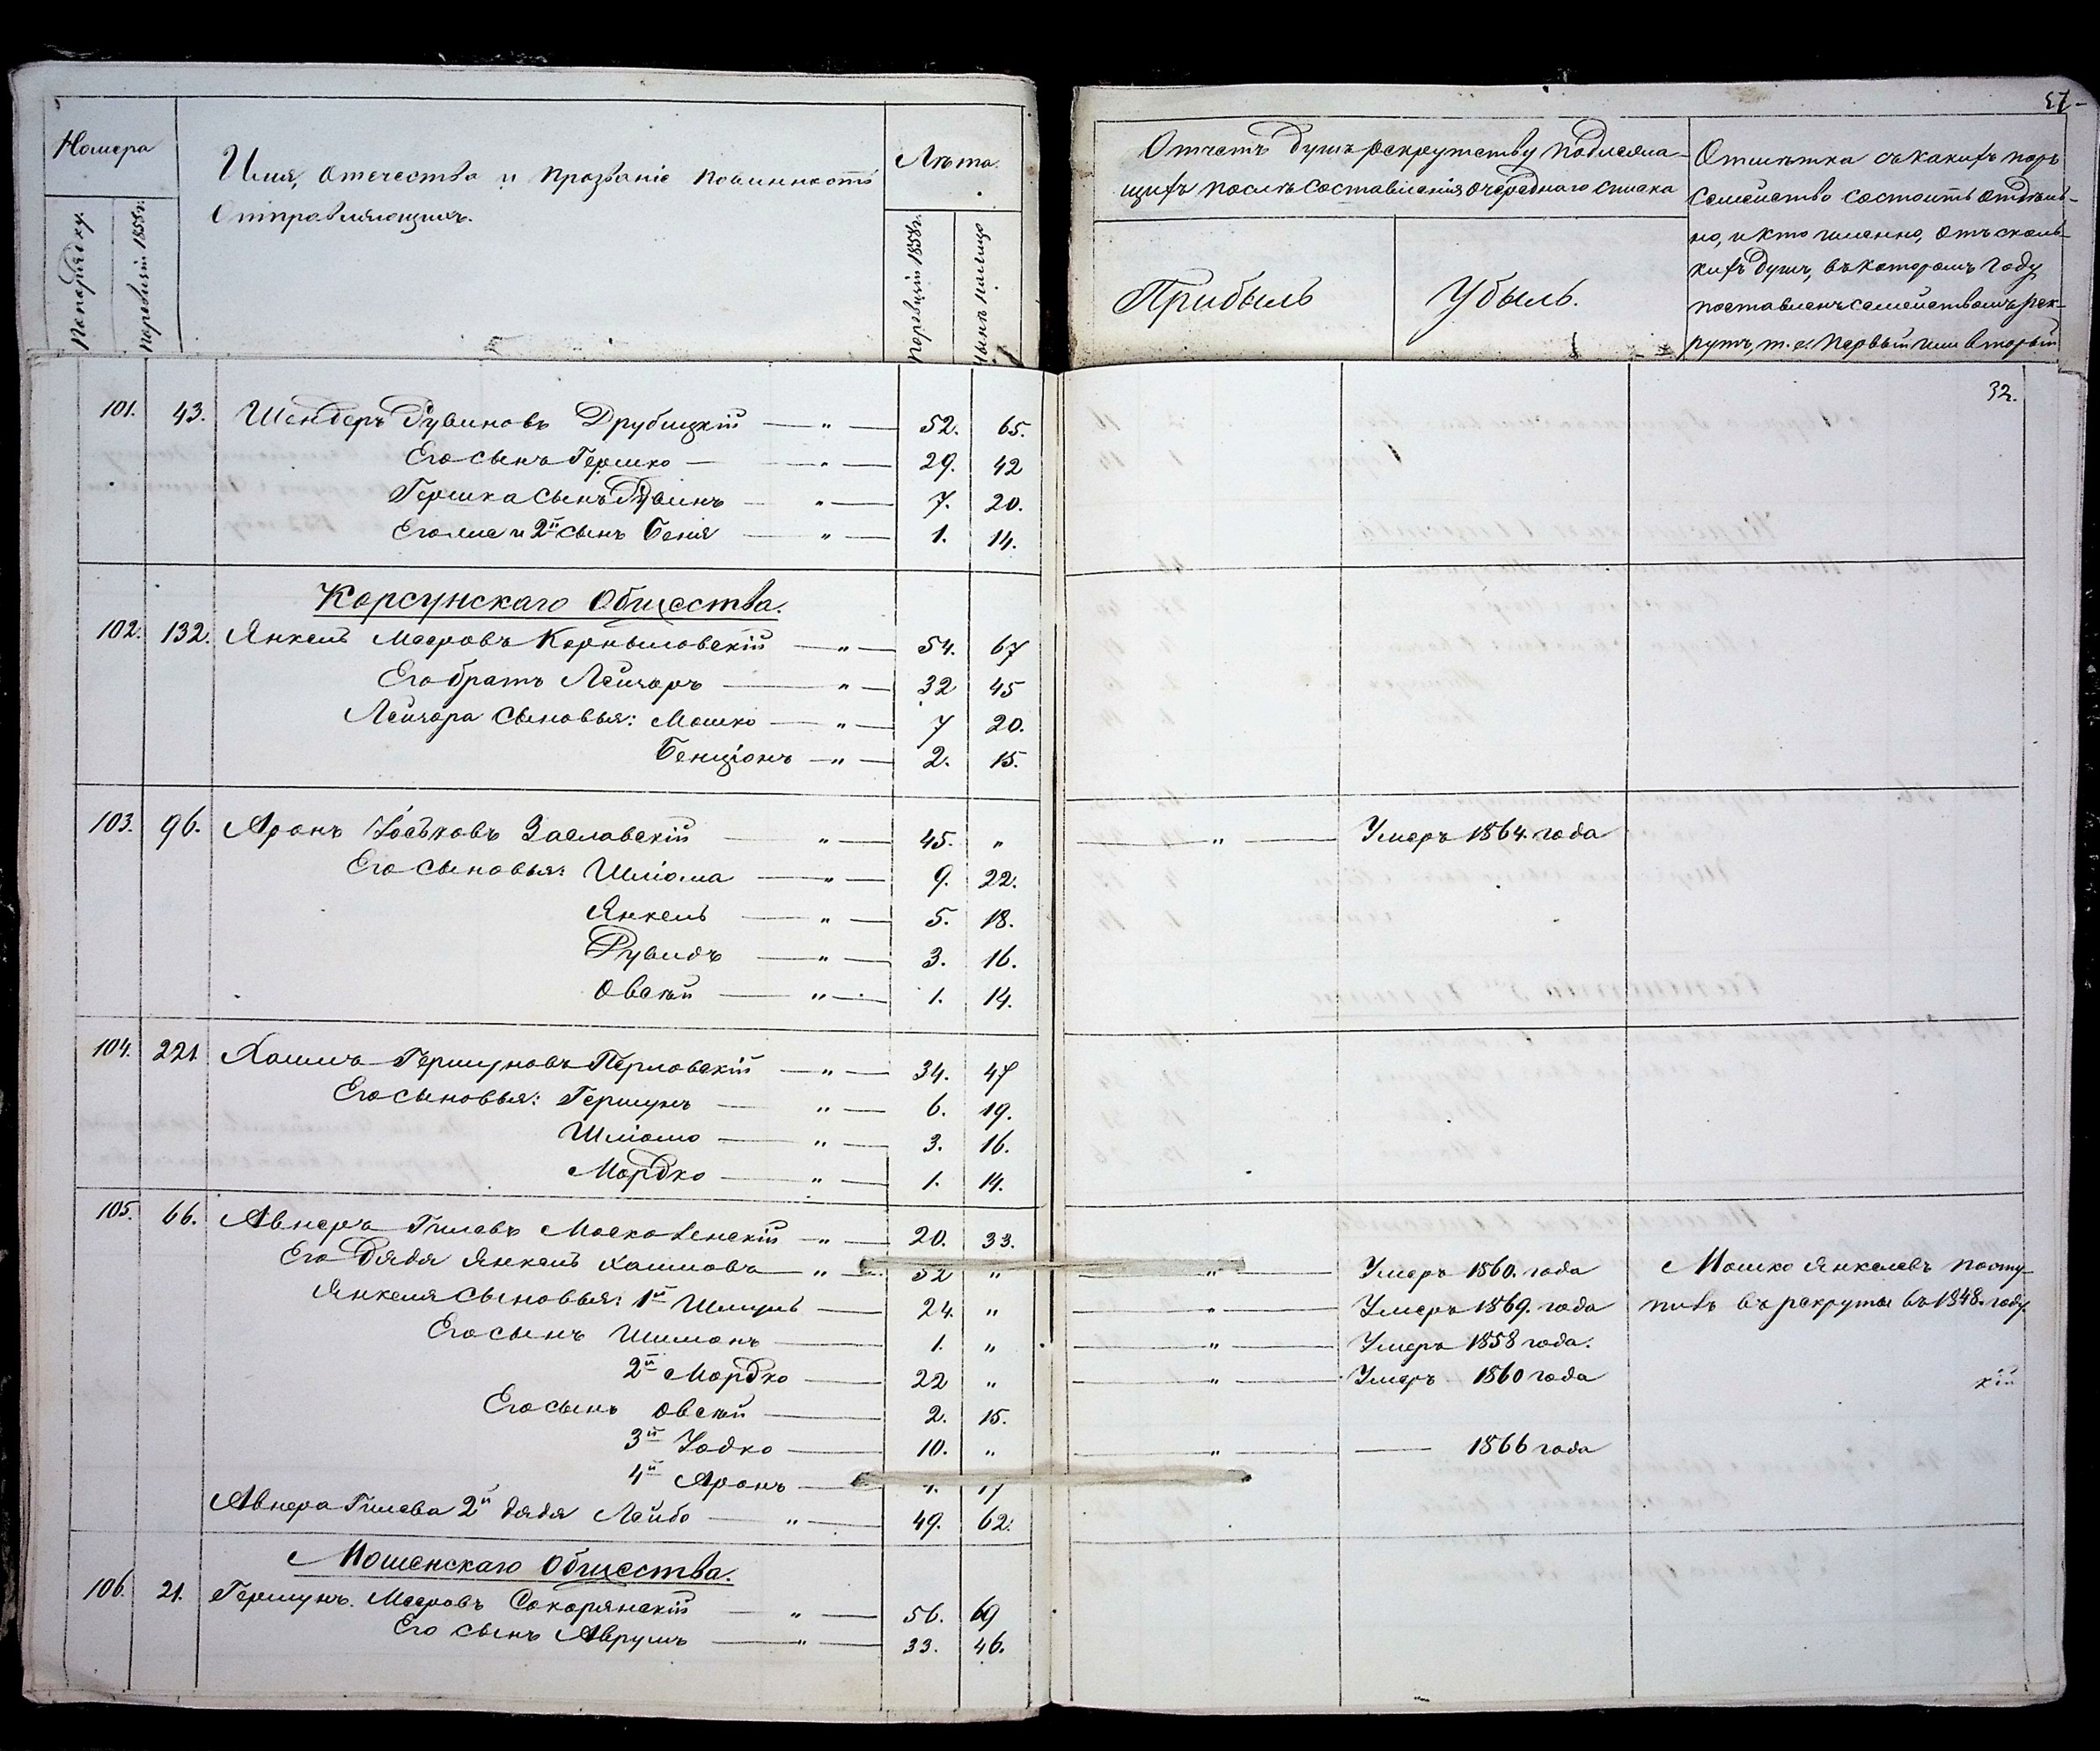 Номера
Имя, отечество и прозваніе повинность
Отправляющихъ.
Лѣта.
По порядку.
По ревизіи 1858 г.
По ревизіи 1858 г.
Нынѣ на лицо
57
Отчетъ душъ рекрутству подлежа-
щихъ послѣ составленія очереднаго списка
Прибыль
Убыль.
Отмѣтка съ какихъ поръ
семейство состоитъ отдѣль-
но, и кто именно, отъ сколь-
кихъ душъ, въ которомъ году
поставленъ семействомъ рек-
рутъ, т. е. первый или вторый
32.
101. 43. Шендеръ Рувиновъ Друбицкій — " — 52. 65.
Его сынъ Гершко — " — 29. 42
Гершка сынъ Рувинъ — " — 7. 20.
Его же и 2й сынъ Бенія — " — 1. 14.
Корсунскаго Общества.
102. 132. Янкель Мееровъ Корныловскій — " — 54. 67
Его братъ Лейзоръ — " — 32 45
Лейзора сыновья: Мошко — " — 7 20.
Бенціонъ — " — 2. 15.
103. 96. Аронъ Іоськовъ Заславскій — " — 45. " — " — Умеръ 1864. года
Его сыновья: Шліома — " — 9. 22.
Янкель — " — 5. 18.
Рувидъ — " — 3. 16.
Овсѣй — " — 1. 14.
104. 221 Хаимъ Гершуновъ Перловскій — " — 34. 47
Его сыновья: Гершунъ — " — 6. 19.
Шліомо — " — 3. 16.
Мордко — " — 1. 14.
105. 66. Авнеръ Гилевъ Москвенскій — " — 20. 33.
Его дядя Янкель Хаимовъ — " — 52 " — " — Умеръ 1860. года Мошко Янкелевъ посту-
Янкеля сыновья: 1й Шмуль — 24. " — " — Умеръ 1869. года пилъ въ рекруты въ 1848. году
Его сынъ Шимонъ — 1. " — " — Умеръ 1858 года.
2й Мордко — 22 " — " — Умеръ 1860 года
кій
Его сынъ Овсѣй — 2. 15.
3й Іодко — 10. " — " — — 1866 года
4й Аронъ — 4. 17
Авнера Гилева 2й дядя Лейбо — " — 49. 62.
Мошенскаго Общества.
106. 21. Гершунъ Мееровъ Сокорянскій — " — 56. 69
Его сынъ Аврумъ — " — 33. 46.